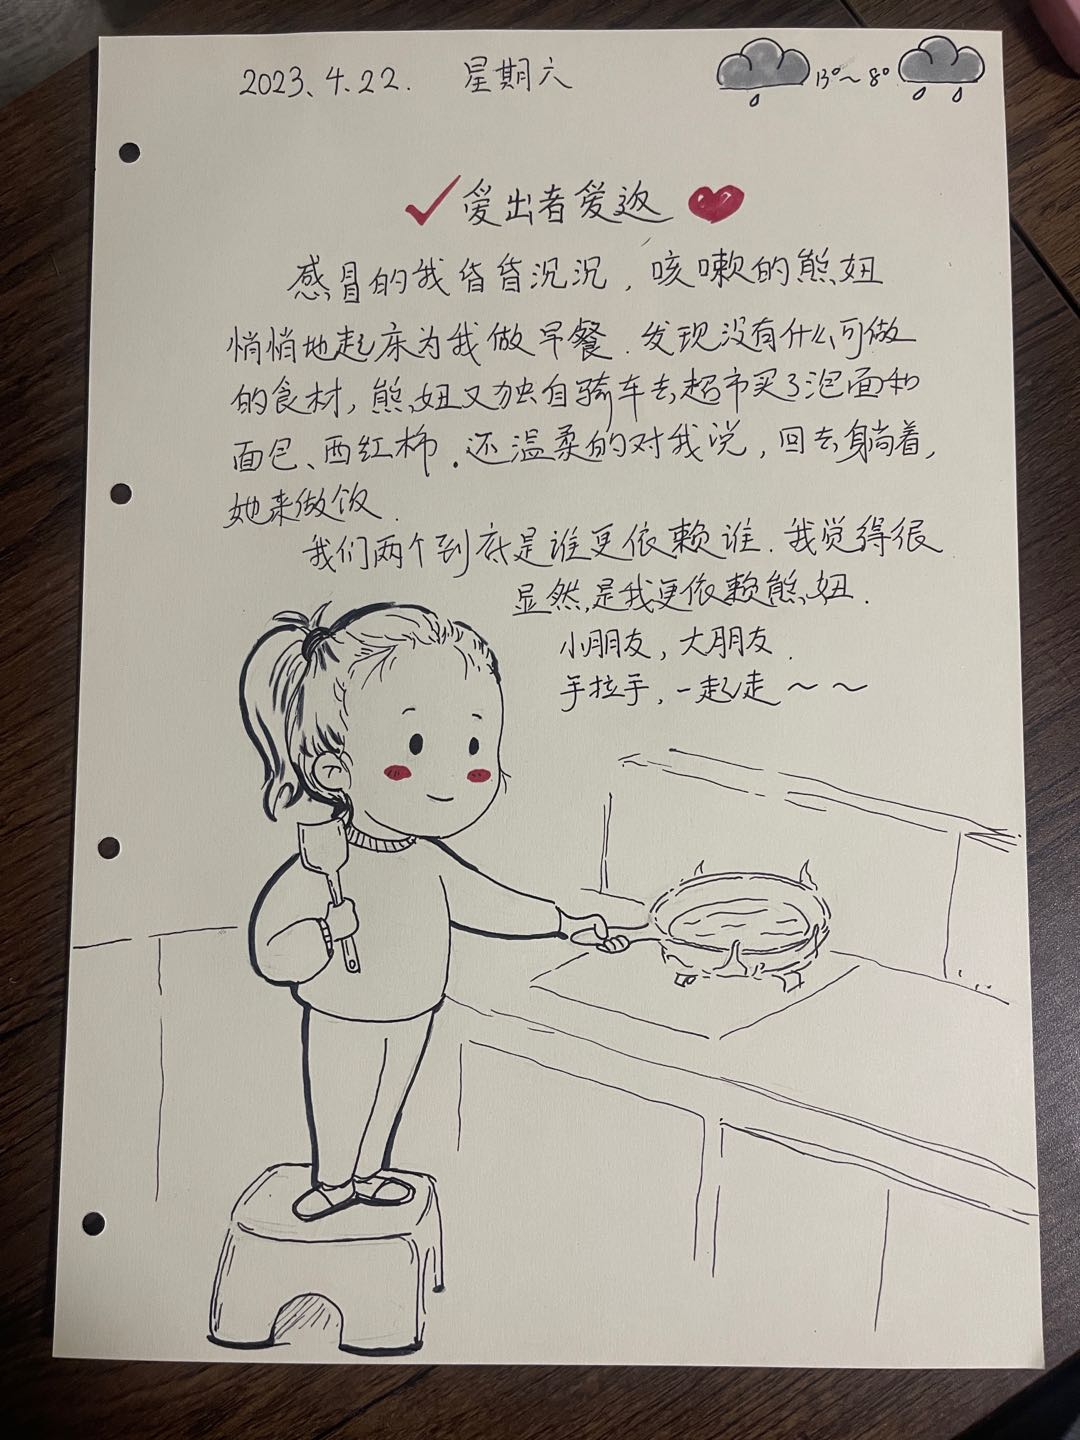 2023.4.22. 星期六
13°~8°
爱出者爱返
感冒的我昏昏沉沉，咳嗽的熊妞
悄悄地起床为我做早餐.发现没有什么可做
的食材，熊妞又独自骑车去超市买了泡面和
面包、西红柿.还温柔的对我说，回去躺着，
她来做饭.
我们两个到底是谁更依赖谁.我觉得很
显然,是我更依赖熊妞.
小朋友，大朋友.
手拉手，一起走~~